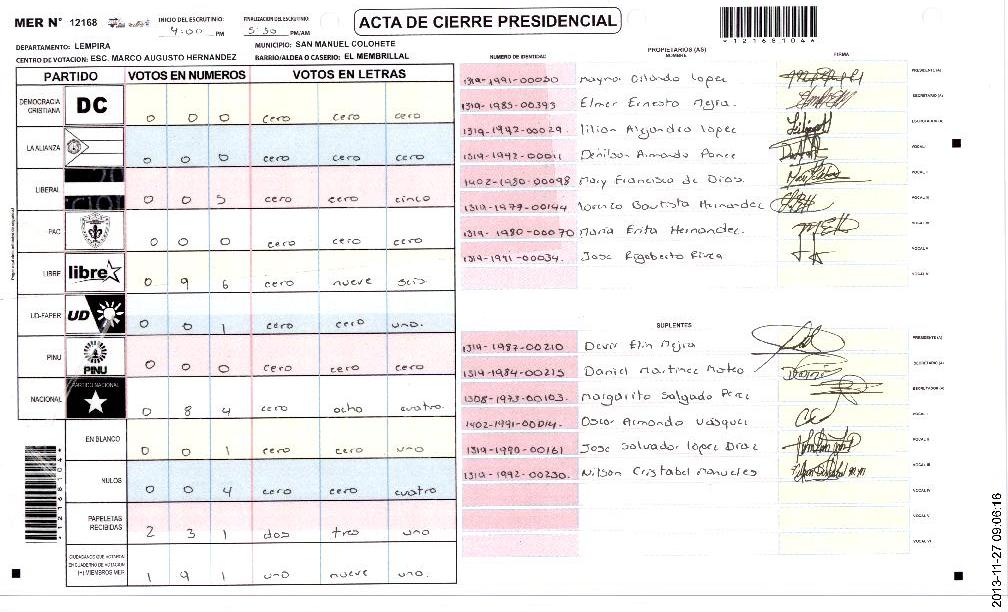 MER N° 12168
INICIO DEL ESCRUTINIO:
4:00 PM
FINALIZACION DEL ESCRUTINIO:
5:30 PM/AM
ACTA DE CIERRE PRESIDENCIAL
DEPARTAMENTO: LEMPIRA
MUNICIPIO: SAN MANUEL COLOHETE
CENTRO DE VOTACION: ESC. MARCO AUGUSTO HERNANDEZ
BARRIO/ALDEA O CASERIO: EL MEMBRILLAL
PARTIDO VOTOS EN NUMEROS VOTOS EN LETRAS
DEMOCRACIA CRISTIANA DC 0 0 0 cero cero cero
LA ALIANZA 0 0 0 cero cero cero
LIBERAL 0 0 5 cero cero cinco
PAC 0 0 0 cero cero cero
LIBRE libre 0 9 6 cero nueve seis
UD-FAPER UD 0 0 1 cero cero uno.
PINU PINU 0 0 0 cero cero cero
NACIONAL PARTIDO NACIONAL 0 8 4 cero ocho cuatro.
EN BLANCO 0 0 1 cero cero uno
NULOS 0 0 4 cero cero cuatro
PAPELETAS RECIBIDAS 2 3 1 dos tres uno
CIUDADANOS QUE VOTARON EN CUADERNO DE VOTACION (+) MIEMBROS MER 1 9 1 uno nueve uno.
PROPIETARIOS (AS)
NUMERO DE IDENTIDAD NOMBRE FIRMA
1319-1991-00030 Maynor Orlando lopez PRESIDENTE(A)
1319-1985-00393 Elmer Ernesto Mejia. SECRETARIO(A)
1319-1992-00029. lilian Alejandra lopez
1319-1992-00011 Denilson Armando Ponce VOCAL I
1402-1980-00098 Mary Francisca de Dios. VOCAL II
1319-1977-00144 lorenzo Bautista Hernandez VOCAL III
1319-1980-00070 Maria Erita Hernandez. VOCAL IV
1319-1991-00034. Jose Rigoberto Rivera VOCAL V
VOCAL VI
SUPLENTES
1319-1987-00210 Devir Elin Mejia PRESIDENTE(A)
1319-1984-00215 Daniel Martinez Mateo SECRETARIO(A)
1308-1973-00103. Margarito Salgado Perez ESCRUTADOR(A)
1402-1991-00014. Oscar Armando Vasquez VOCAL I
1319-1990-00161 Jose Salvador lopez Diaz VOCAL II
1319-1992-00230. Nilson Cristabel Manueles VOCAL III
VOCAL IV
VOCAL V
VOCAL VI
2013-11-27 09:06:16